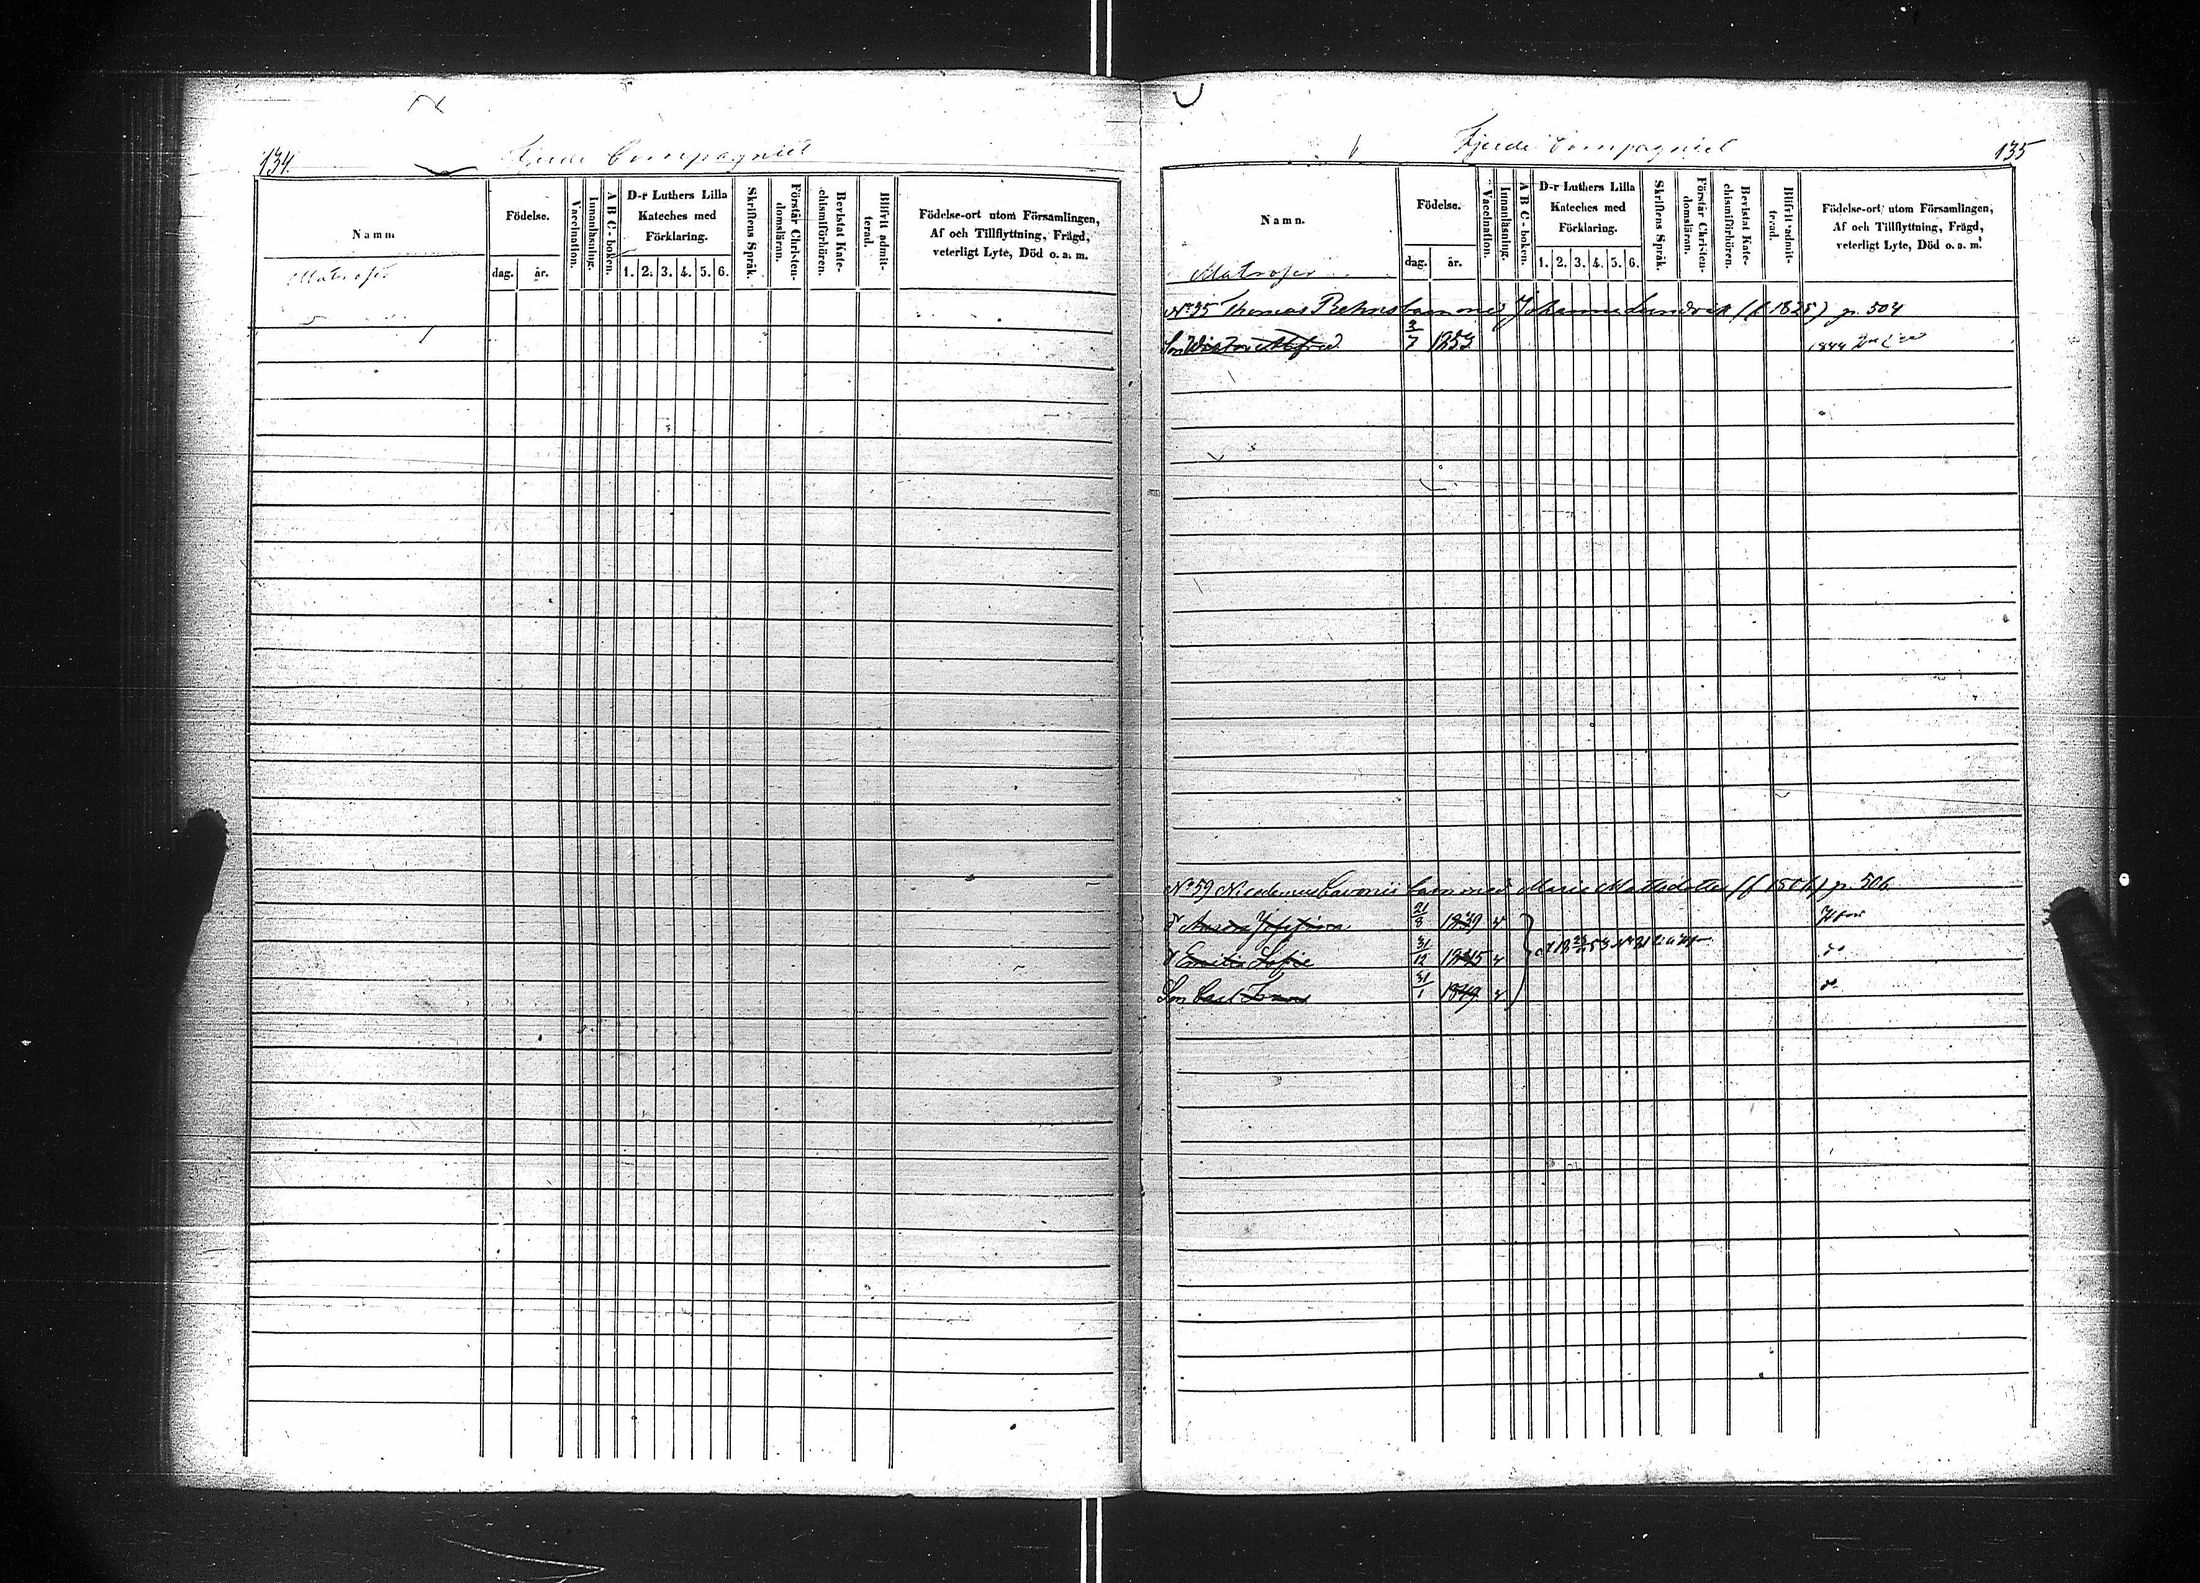 134.
Fjerde Compagniet
Namn
Födelse.
dag. år.
Vaccination.
Innanläsning.
A B C - boken.
D-r Luthers Lilla
Kateches med
Förklaring.
1. 2. 3. 4. 5. 6.
Skriftens Språk.
Förstår Christen-
domsläran.
Bevistat Kate-
chismiförhören.
Blifvit admit-
terad.
Födelse-ort utom Församlingen,
Af och Tillflyttning, Frägd,
veterligt Lyte, Död o. a. m.
Matroser
Fjerde Compagniet
135
Namn.
Födelse.
dag. år.
Vaccination.
Innanläsning.
A B C - boken.
D-r Luthers Lilla
Kateches med
Förklaring.
1. 2. 3. 4. 5. 6.
Skriftens Språk.
Förstår Christen-
domsläran.
Bevistat Kate-
chismiförhören.
Blifvit admit-
terad.
Födelse-ort utom Församlingen,
Af och Tillflyttning, Frägd,
veterligt Lyte, Död o. a. m.
Matroser
No 35 Thomas Rehns barn med Johanna Lundvik (f 1825) p. 504
Son 3/7 1853
No 59 Nicodemus barn med Maria Mattsdotter p. 506
d 21/8 1839 v
d Emilia Sofie 31/12 1845 v do
Son Carl 31/1 1849 v do